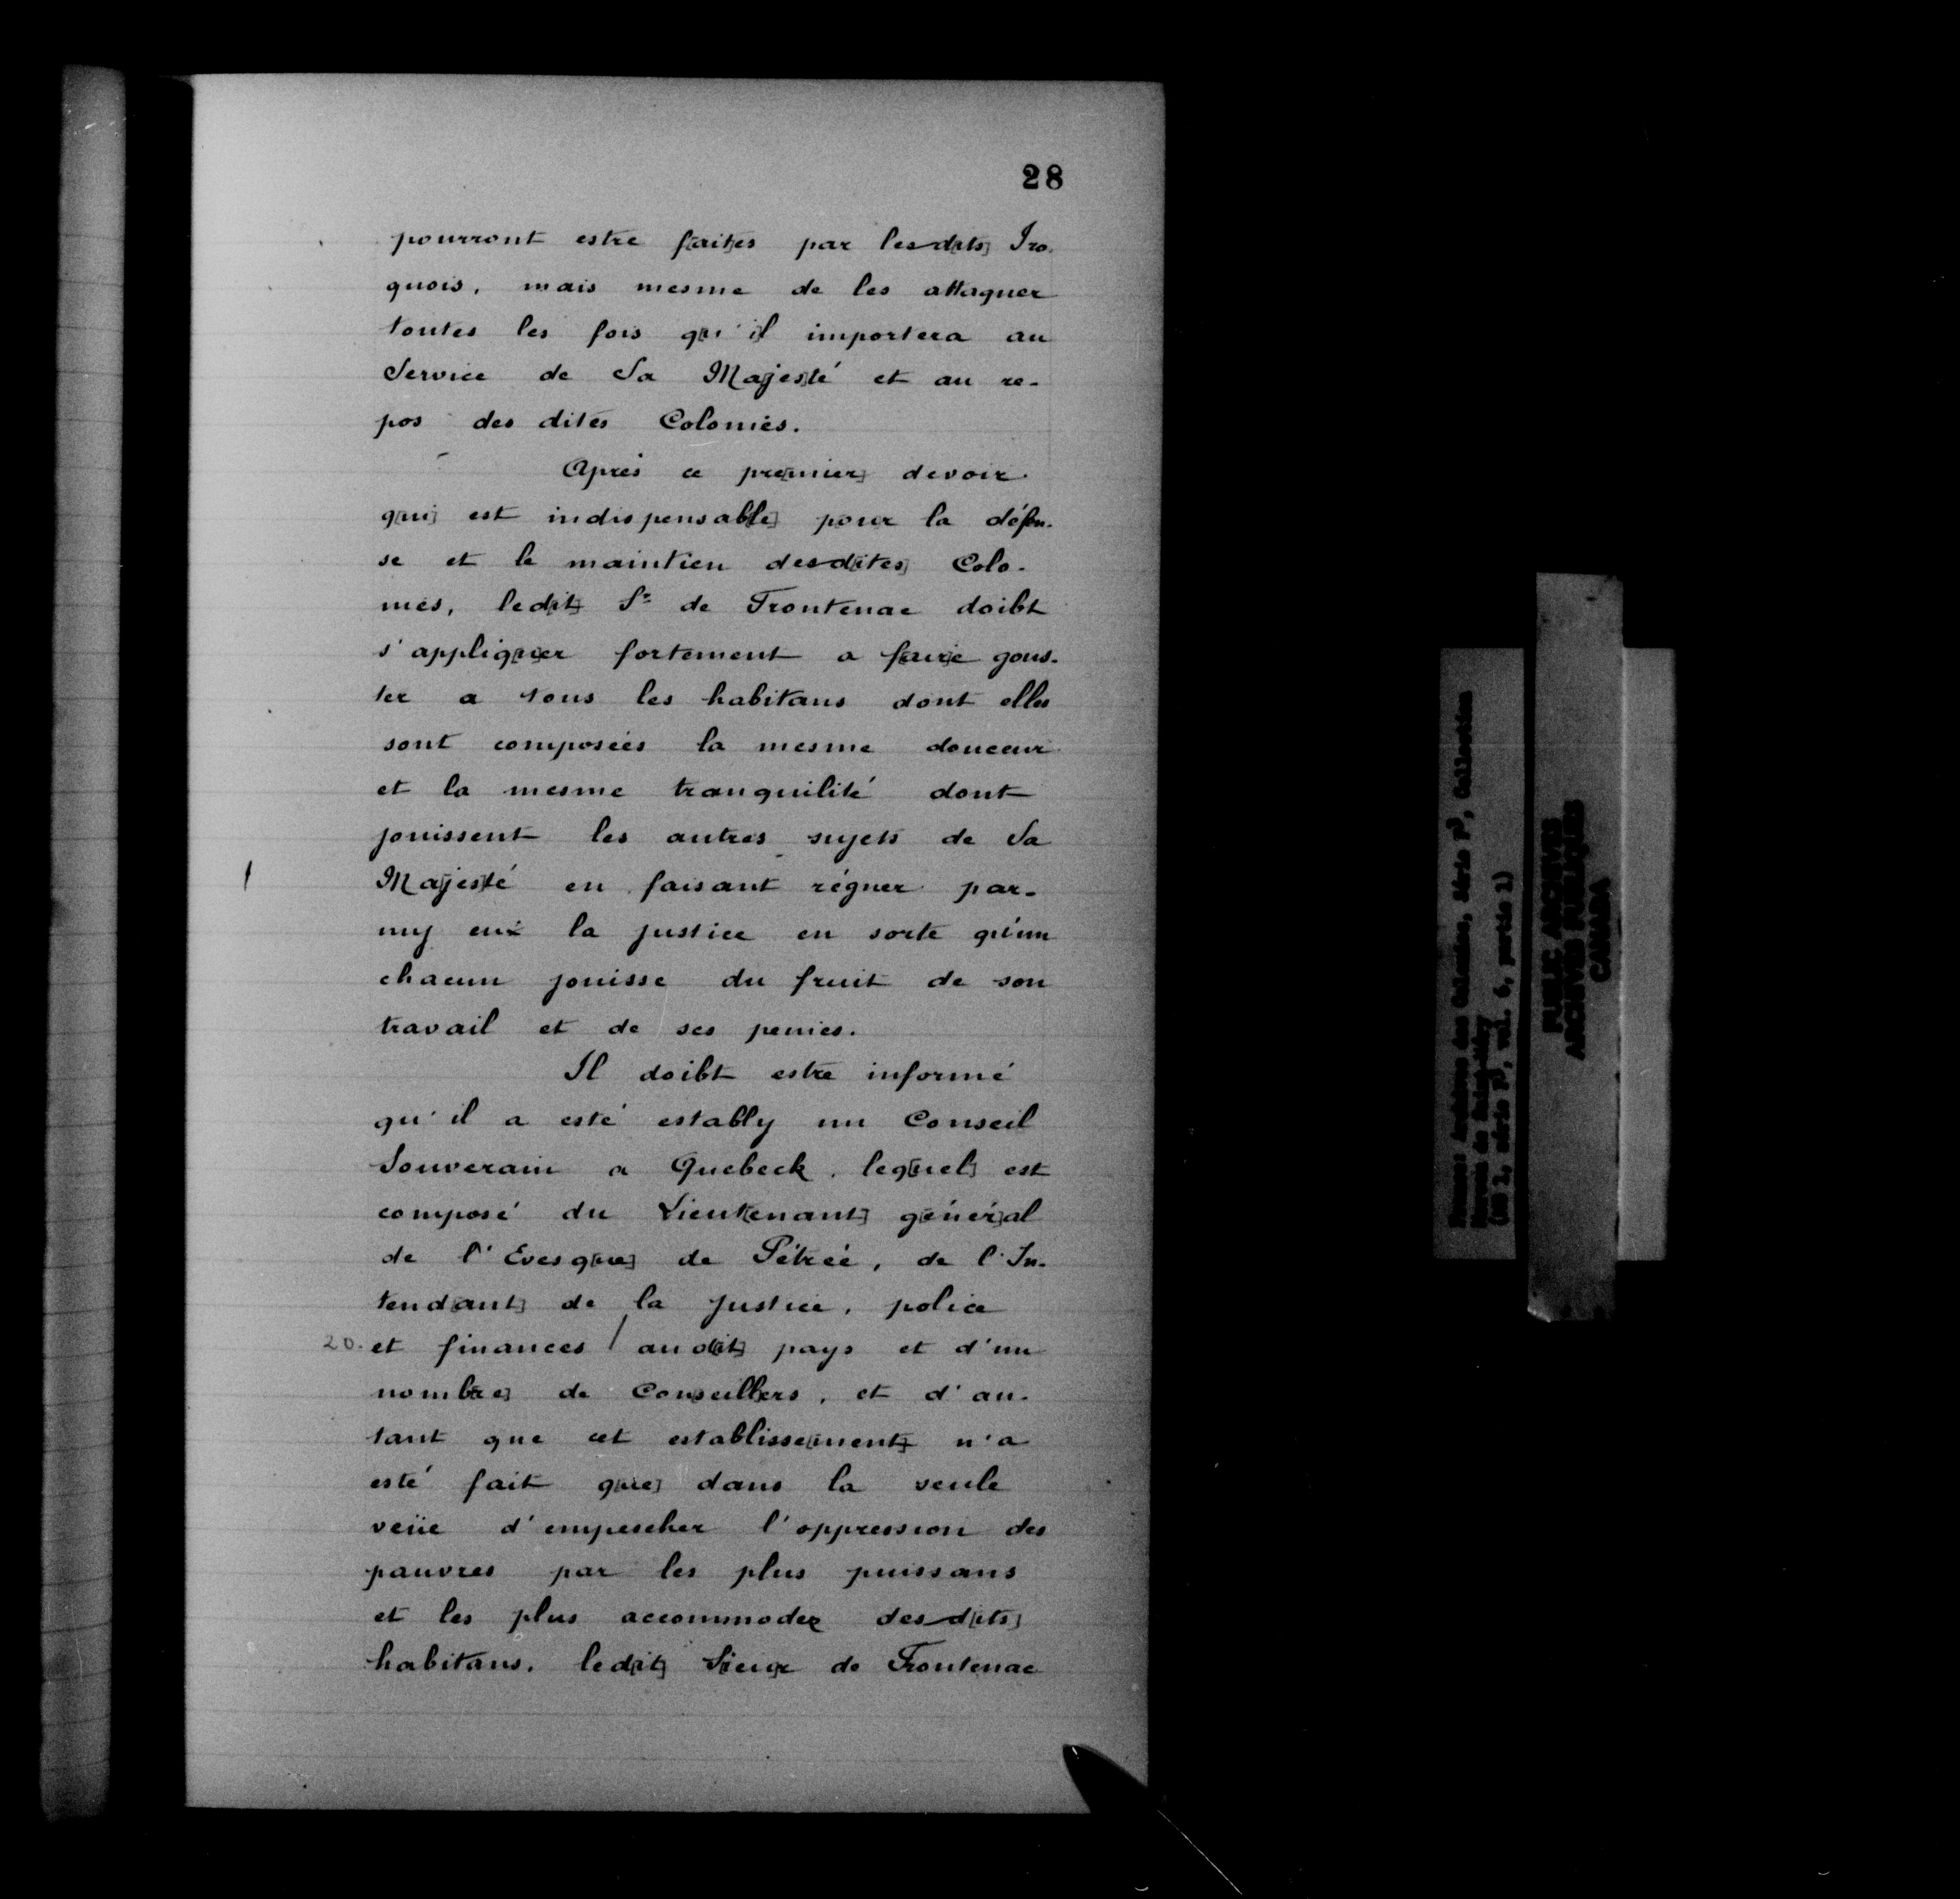 28
pourront estre f[ait]es par lesd[its] Iro-
quois, mais mesme de les attaquer
toutes les fois q[u'i]l importera au
Service de Sa Ma[jes]té et au re-
pos des dites Colonies.
Après ce pre[mier] devoir
q[ui] est indispensab[le] pour la défen-
se et le maintien desd[ites] Colo-
nies, led[it] Sr de Frontenac doibt
s'appliq[u]er fortement a f[air]e gous-
ter a tous les habitans dont elles
sont composées la mesme douceur
et la mesme tranquilité dont
jouissent les autres sujets de Sa
Ma[jes]té en faisant régner par-
my eux la justice en sorte qu'un
chacun jouisse du fruit de son
travail et de ses peines.
Il doibt estre informé
qu'il a esté estably un Conseil
Souverain a Quebeck, leq[uel] est
composé du Lieut[enant] g[énér]al
de l'Evesq[ue] de Pétrée, de l'In-
tend[ant] de la justice, police
20. et finances / aud[it] pays et d'un
nomb[re] de Cons[eill]ers, et d'au-
tant que cet establisse[ment] n'a
esté fait q[ue] dans la seule
veüe d'empescher l'oppression des
pauvres par les plus puissans
et les plus accommodez desd[its]
habitans, led[it] S[ieu]r de Frontenac
France: Archives des Colonies, Série F3, Collection
Moreau de Saint-Méry
(MG 1, série F3, vol. 6, partie 1)
PUBLIC ARCHIVES
ARCHIVES PUBLIQUES
CANADA